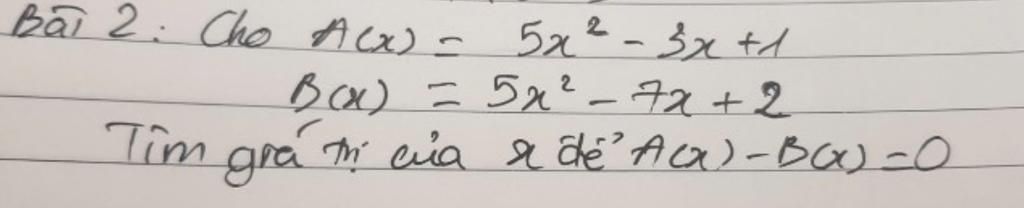 Bài 2: Cho A(x) = 5x² - 3x + 1
B(x) = 5x² - 7x + 2
Tìm giá trị của x để A(x) - B(x) = 0